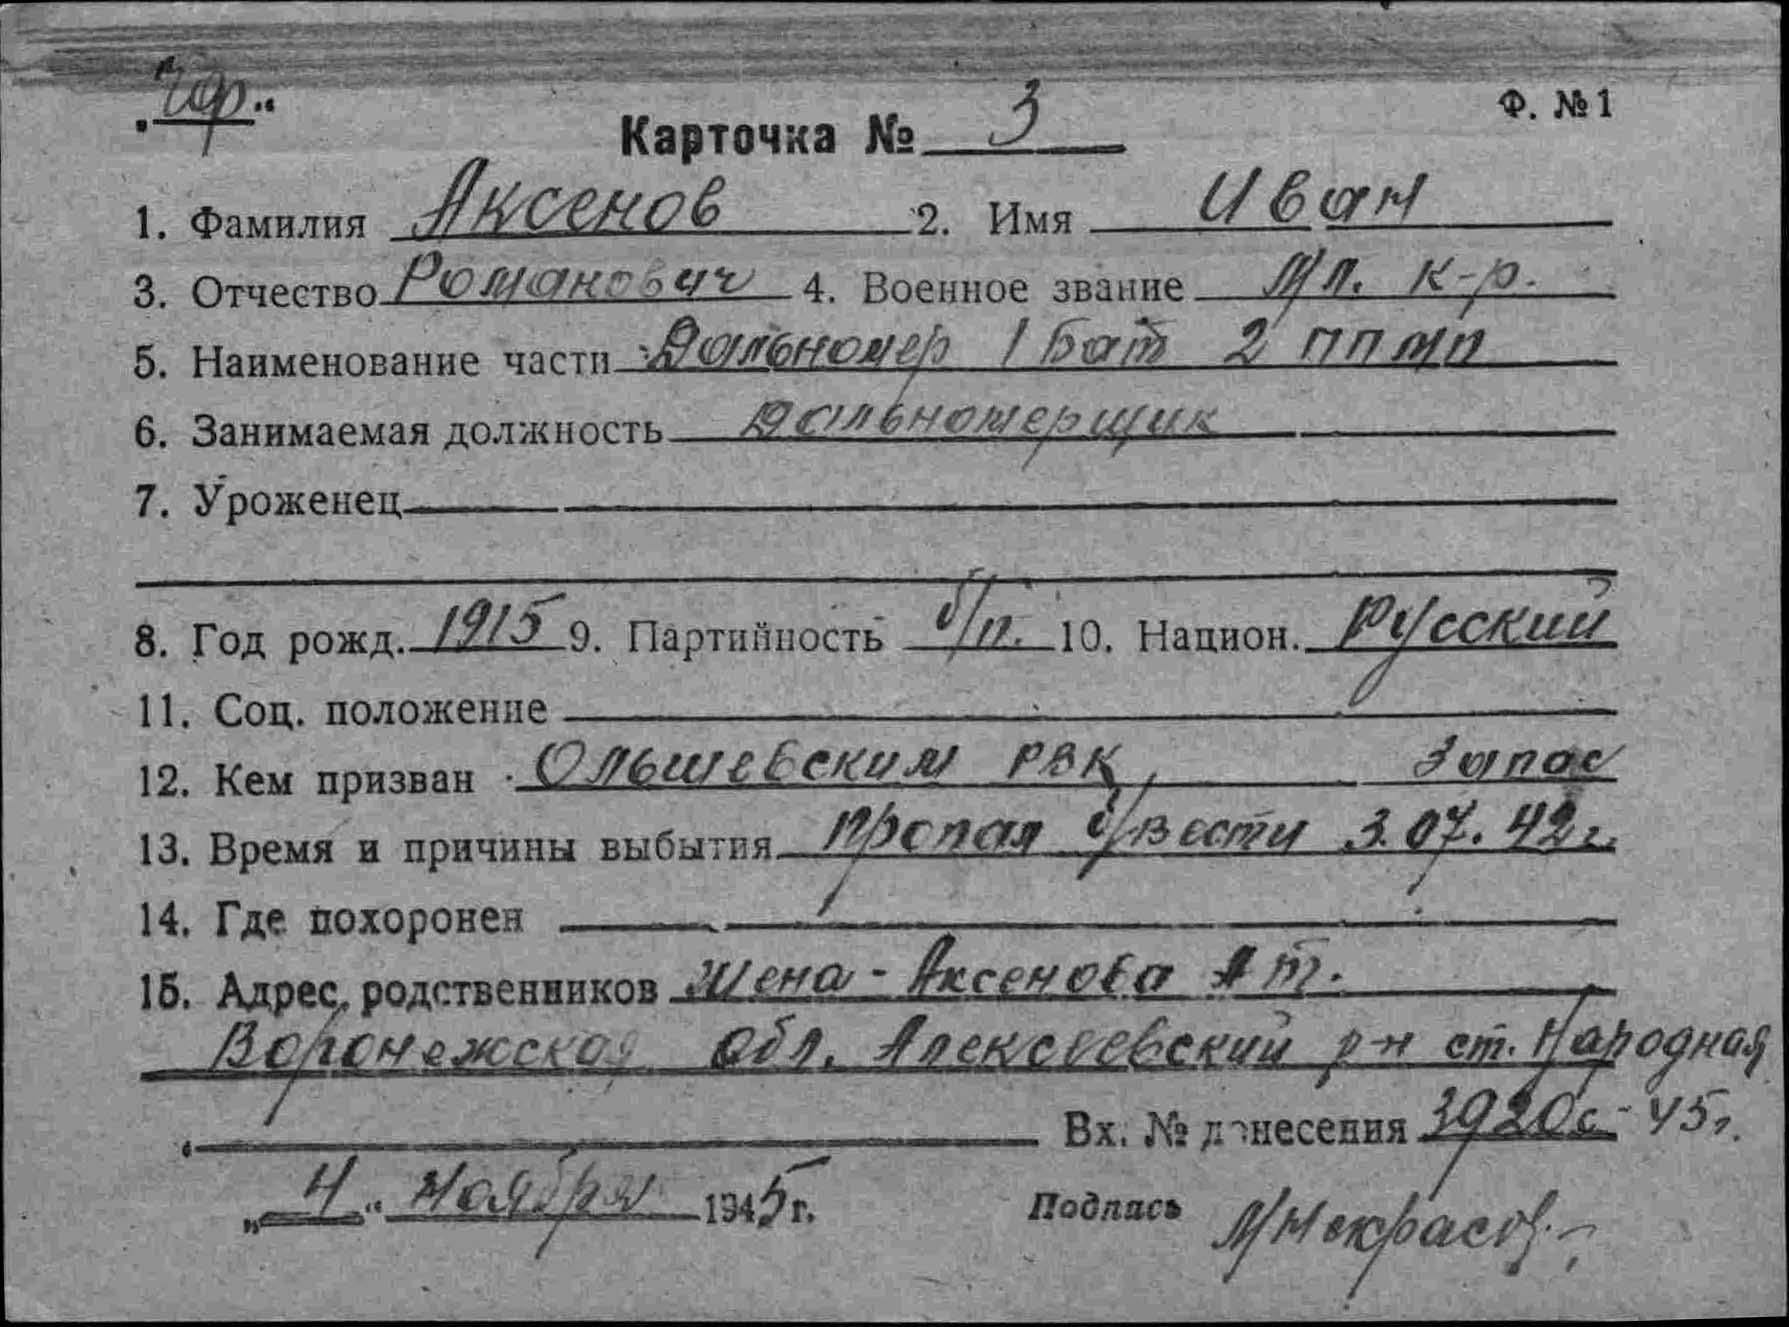 "Чф."
Ф. № 1
Карточка № 3
1. Фамилия Аксенов 2. Имя Иван
3. Отчество Романович 4. Военное звание Мл. к-р.
5. Наименование части Дальномер 1 Бат 2 ппмп
6. Занимаемая должность Дальномерщик
7. Уроженец
8. Год рожд. 1915 9. Партийность б/п. 10. Национ. Русский
11. Соц. положение
12. Кем призван Ольшевским РВК, Запас
13. Время и причины выбытия пропал б/вести 3.07.42 г.
14. Где похоронен
15. Адрес родственников Жена - Аксенова А Т.
Воронежская обл. Алексеевский р-н ст. Народная
Вх. № донесения 3920с - 45 г.
„4" Ноября 1945 г. Подпись МНекрасов